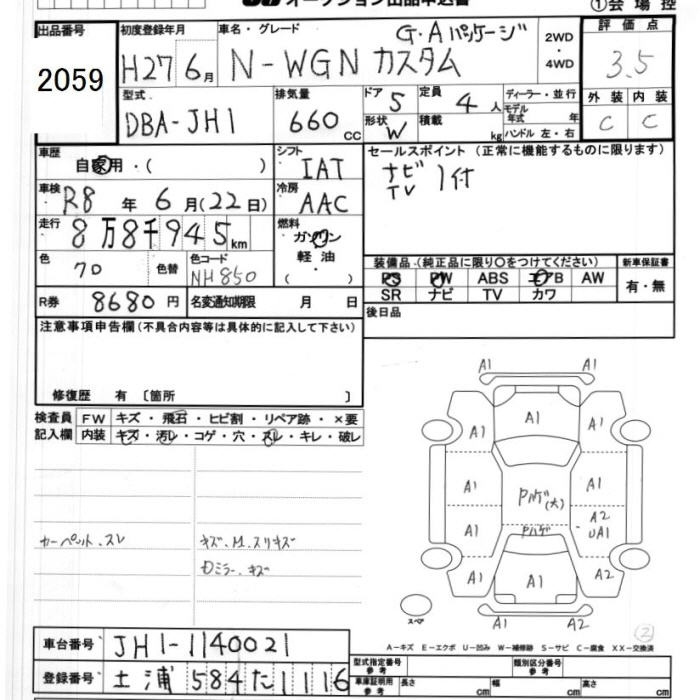 オークション出品申込書
①会場控
出品番号
2059
初度登録年月
H27 6月
車名・グレード
G・Aパッケージ
N-WGN カスタム
2WD
・
4WD
評価点
3.5
外装 内装
C C
型式
DBA-JH1
排気量
660cc
ドア 5
定員 4人
形状 W
積載 kg
ディーラー・並行
モデル年式 年
ハンドル 左・右
車歴
自家用・( )
シフト
IAT
セールスポイント (正常に機能するものに限ります)
ナビ
TV 1付
車検
R8年 6月(22日)
冷房
AAC
走行
8万8千945km
燃料
ガソリン
軽油
( )
色
70
色替
色コード
NH850
装備品・(純正品に限り○をつけてください)
PS PW ABS エアB AW
SR ナビ TV カワ
新車保証書
有・無
R券 8680円
名変通知期限 月 日
後日品
注意事項申告欄(不具合内容等は具体的に記入して下さい)
修復歴 有 〔箇所 〕
検査員記入欄
FW キズ・飛石・ヒビ割・リペア跡・×要
内装 キズ・汚レ・コゲ・穴・スレ・キレ・破レ
カーペット、スレ
キズ、M、スリキズ
Dミラー、キズ
A1 A1
A1
A1 A1
A1 A1
Pハゲ(大)
A1 A2
UA1
Pハゲ
A1 A1 A2
A1 A2
スペア
②
A-キズ E-エクボ U-凹み W-補修跡 S-サビ C-腐食 XX-交換済
車台番号 JH1-1140021
登録番号 土浦 584 た 1116
型式指定番号 参考
類別区分番号 参考
車庫証明用 参考
長さ cm
幅 cm
高さ cm